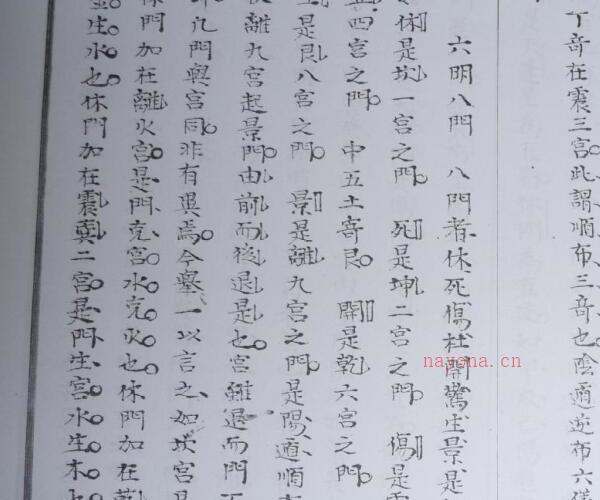 丁奇在震三宮此謂順布三奇也陰遁逆布六儀
六明八門　八門者休死傷杜開驚生景是
休是坎一宮之門　死是坤二宮之門　傷是震
四宮之門　中五土寄艮　開是乾六宮之門
是艮八宮之門　景是離九宮之門是陽遁順布
離九宮起景門由前而後退是也宮雖退而門不
凡門與宮同非有異焉今舉一以言之如坎宮是
休門加在離火宮是門克宮水克火也休門加在
生水也休門加在震巽二宮是門生宮水生木也
nayona.cn